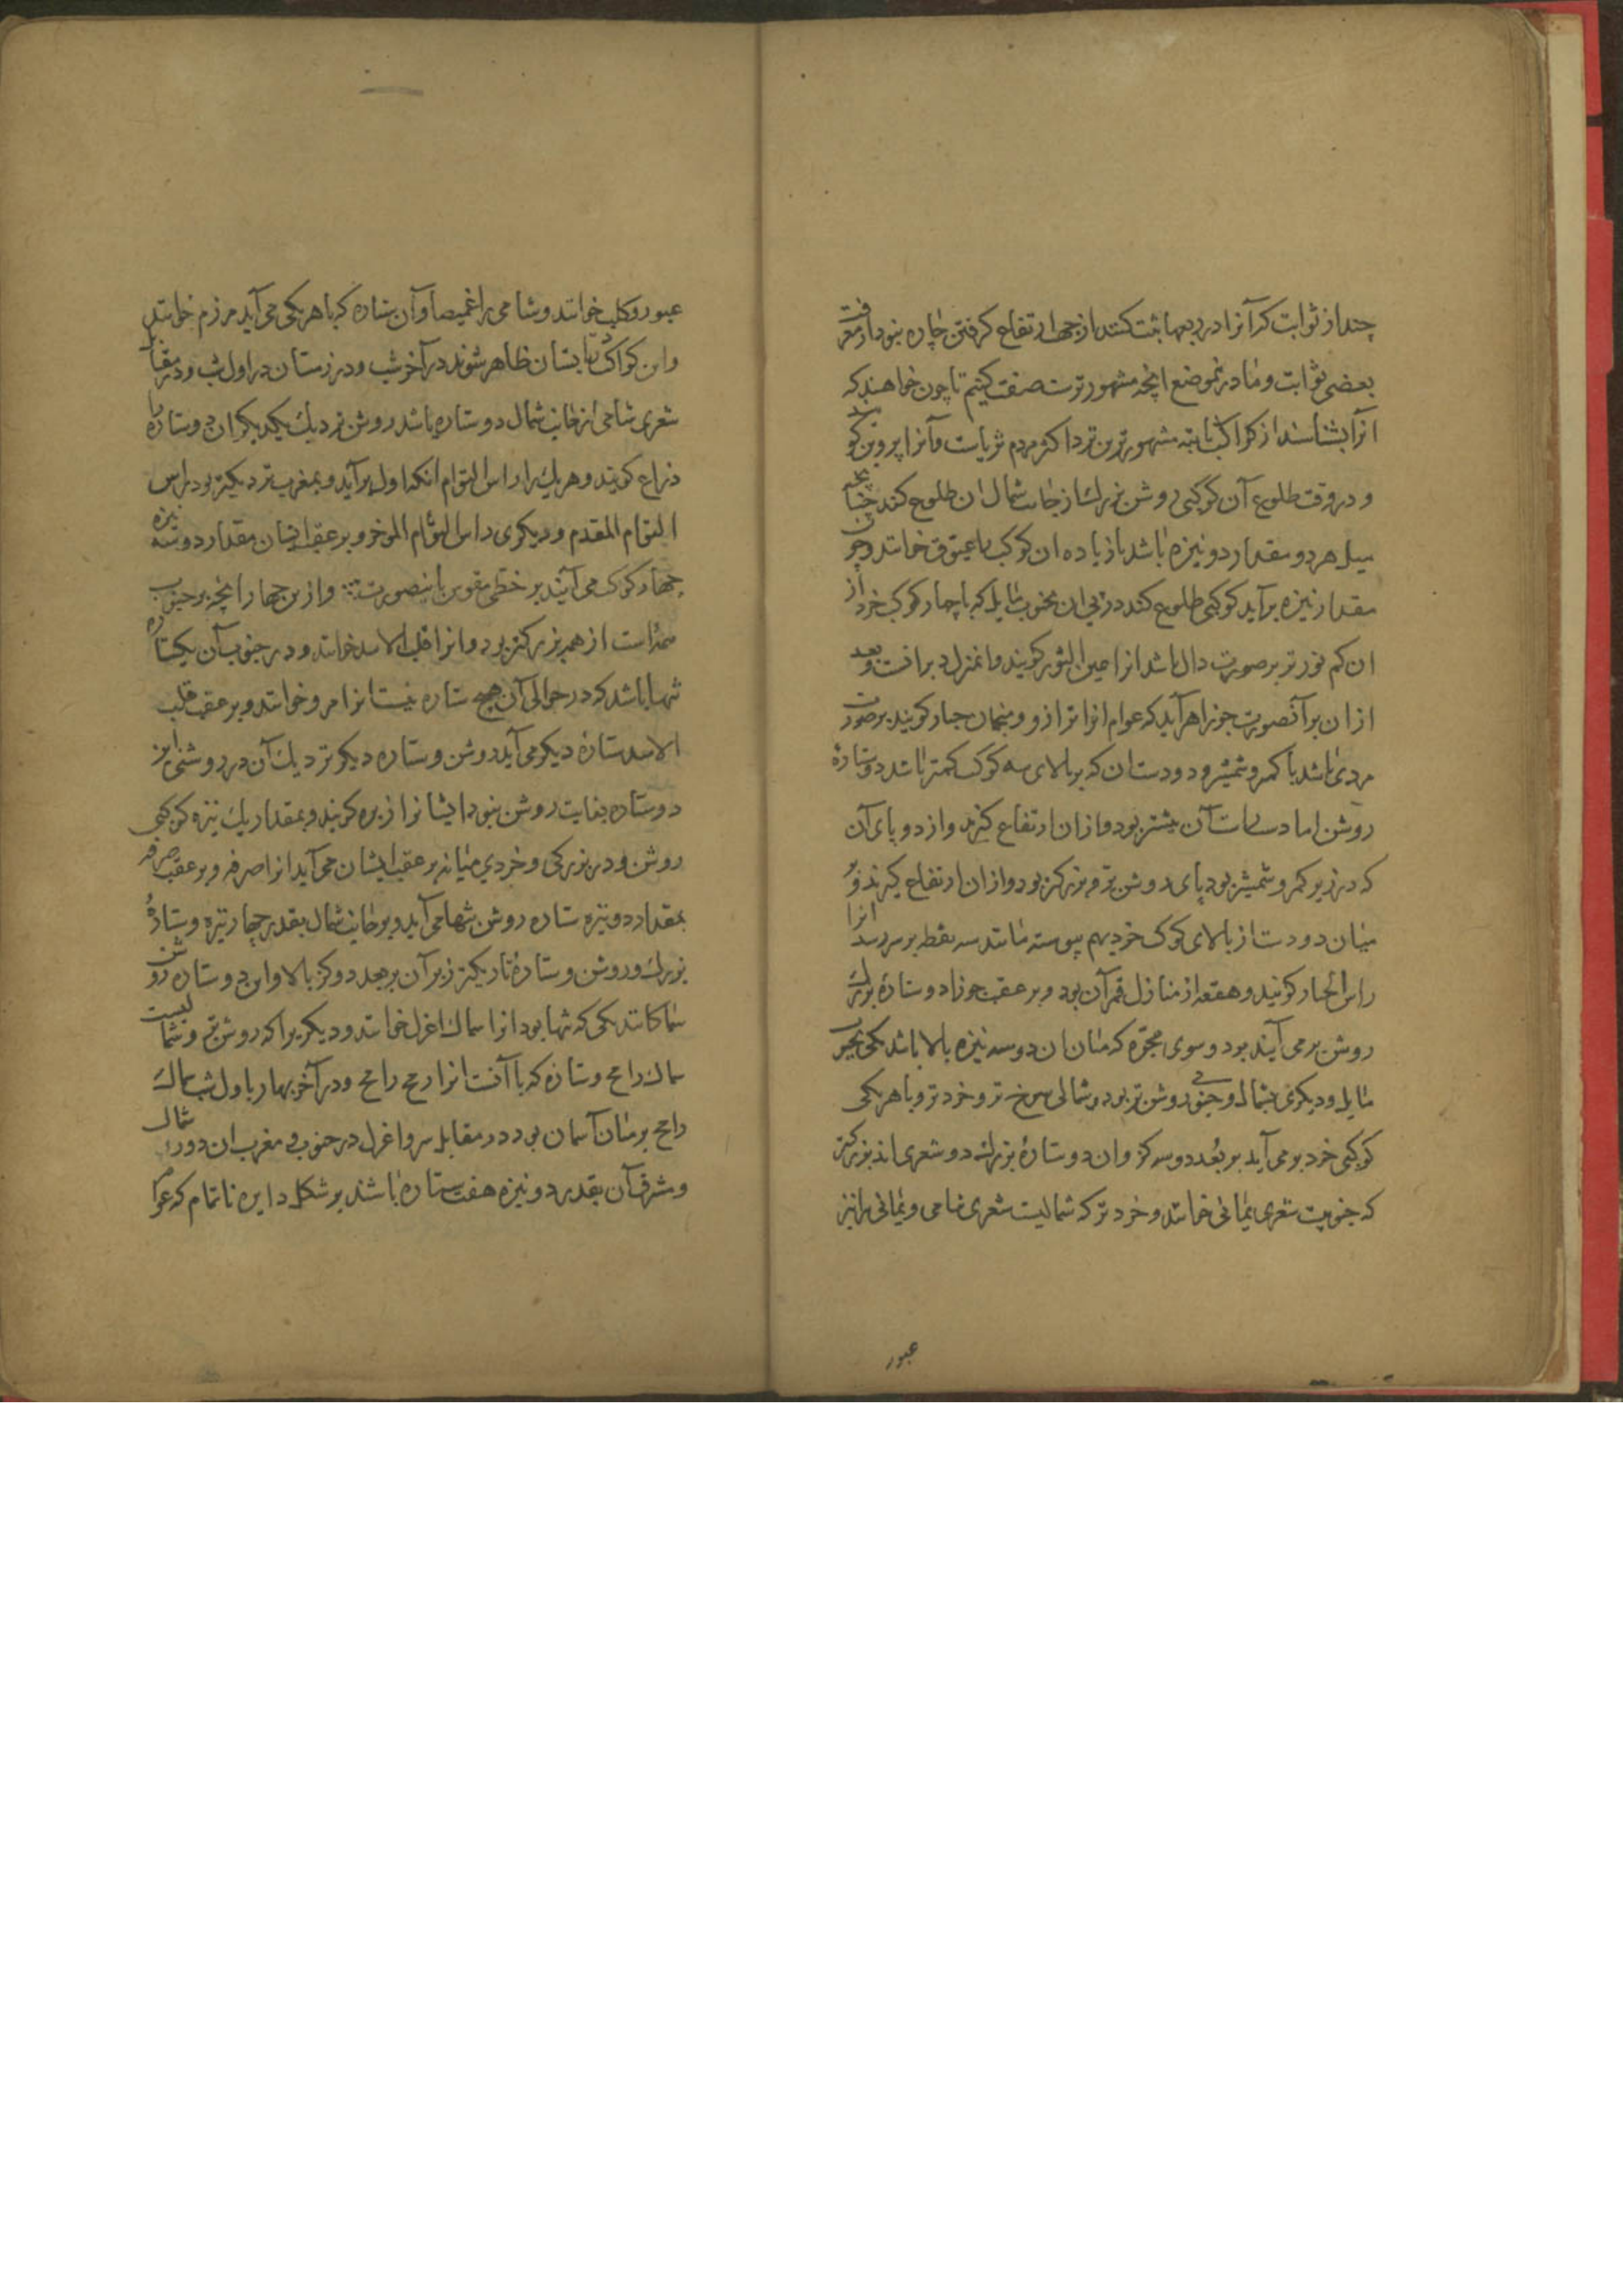 چند از ثوابت کر آنرا در ربعها ثبت کنند از جهة ارتفاع کرفتن چاره نبود از معرفت
بعضی ثوابت و ما در نموضع انچه مشهورترست صفت کنیم تا چون خواهند که
انرا بشناسند از کواکب ثابته مشهورترین نزد اکثر مردم ثریاست و آنرا پروین کویند
و در وقت طلوع آن کوکبی روشن بزرک از جانب شمال ان طلوع کند چنانچه
میل هر دو مقدار دو نیزه باشد یا زیاده ان کوکب را عیوق خوانند و چون
مقدار نیزه برآید کوکبی طلوع کند در پی ان بجنوب مایل که با چهار کوکب خرد از
ان کم نورتر بر صورت دال باشد انرا عین الثور کویند و انمنزل دبرانست و بعد
ازان برآنصورت جوزا هرآید که عوام انرا ترازو و منجمان جبار کویند بر صورت
مردی باشد با کمر و شمشیر و دو دستان که بر بالای سه کوکب کمتر باشد دو ستارهٔ
روشن اما دست راست آن بیشتر بود و ازان ارتفاع کیرند و از دو پای آن
که در زیر کمر و شمشیر بود پای روشن تر و بزرکتر بود و ازان ارتفاع کیرند و بر
میان دو دست از بالای کوکب خرد بهم پیوسته مانند سه نقطه بر سر رسد انرا
راس الجبار کویند و هقعه از منازل قمر آن بود و بر عقب جوزا دو ستارهٔ بزرک
روشن بر می آیند بر دو سوی مجره که میان ان دو سه نیزه بالا باشد یکی بجنوب
مایل و دیکری بشمال و جنوبی روشن تر بود و شمالی سرخ تر و خرد تر و با هر یکی
کوکبی خرد بر می آید بر بعد دو سه کز و ان دو ستارهٔ بزرک دو شعری اند بزرکتر
که جنوبیست شعری یمانی خوانند و خرد تر که شمالیست شعری شامی و یمانی را نیز
عبور
عبور و کلب خوانند و شامی را غمیصا و آن ستاره که با هر یکی می آید مرزم خوانند
و این کواکب تابستان ظاهر شوند در آخر شب و در زمستان در اول شب و در مقابل
شعری شامی از جانب شمال دو ستاره باشد روشن نزدیک یکدیکر ان دو ستاره را
ذراع کویند و هر یک را راس التوام انکه اول برآید و بمغرب نزدیکتر بود راس
التوام المقدم و دیکری راس التوام الموخر و بر عقب ایشان مقدار دو سه نیزه
چهار کوکب می آیند بر خطی مقوس بانیصورت و ازین چهار انچه بر جنوب
ممرّاست از همه بزرکتر بود و انرا قلب الاسد خوانند و در جنوب آن یکستاره
تنها باشد که در حوالی آن هیچ ستاره نیست انرا فرد خوانند و بر عقب قلب
الاسد ستارهٔ دیکر می آید روشن و ستاره دیکر نزدیک آن در روشنی این
دو ستاره بغایت روشن نبود ایشانرا زبره کویند و بمقدار یک نیزه کوکبی
روشن و در بزرکی و خردی میانه بر عقب ایشان می آید انرا صرفه و بر عقب صرفه
بمقدار دو نیزه ستاره روشن تنها می آید و بر جانب شمال بقدر چهار نیزه و ستارهٔ
بزرک و روشن و ستارهٔ تاریکتر زیر آن بر بعد دو کز بالا و این دو ستاره روشن
سماکانند یکی که تنها بود انرا سماک اعزل خوانند و دیکری را که روشن تر و شمالیست
سماک رامح و ستاره که با آنست انرا رمح رامح و در آخر بهار باول شب سماک
رامح بر میان آسمان بود در مقابل سر و اعزل در جنوب و مغرب ان دور شمال
و مشرق آن بقدر دو نیزه هفت ستاره باشند بر شکل دایره ناتمام که عوام